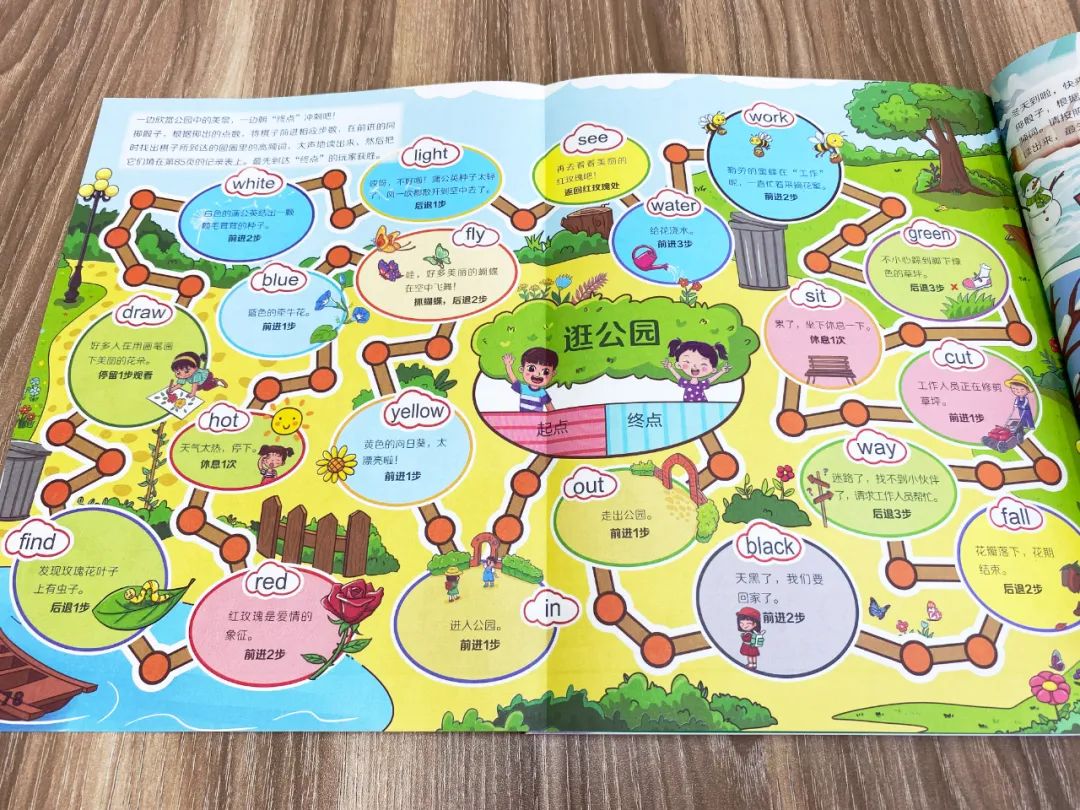 一边欣赏公园中的美景，一边朝“终点”冲刺吧！
掷骰子，根据掷出的点数，将棋子前进相应步数，在前进的同
时找出棋子所到达的圆圈里的高频词，大声地读出来，然后把
它们填在第85页的记录表上。最先到达“终点”的玩家获胜。
white
白色的蒲公英结出一颗
颗毛茸茸的种子。
前进2步
light
哎呀，不好啦！蒲公英种子太轻
了，风一吹都散开到空中去了。
后退1步
see
再去看看美丽的
红玫瑰吧！
返回红玫瑰处
work
勤劳的蜜蜂在“工作”
呢，一直忙着采摘花蜜。
前进2步
water
给花浇水。
前进3步
green
不小心踩到脚下绿
色的草坪。
后退3步
fly
哇，好多美丽的蝴蝶
在空中飞舞！
抓蝴蝶，后退2步
blue
蓝色的牵牛花。
前进1步
draw
好多人在用画笔画
下美丽的花朵。
停留1步观看
sit
累了，坐下休息一下。
休息1次
cut
工作人员正在修剪
草坪。
前进1步
逛公园
起点
终点
hot
天气太热，停下。
休息1次
yellow
黄色的向日葵，太
漂亮啦！
前进1步
way
迷路了，找不到小伙伴
了，请求工作人员帮忙。
后退3步
out
走出公园。
前进1步
fall
花瓣落下，花期
结束。
后退2步
find
发现玫瑰花叶子
上有虫子。
后退1步
red
红玫瑰是爱情的
象征。
前进2步
in
进入公园。
前进1步
black
天黑了，我们要
回家了。
前进2步
78
冬天到啦，快来
掷骰子，根据
频词。请按照
读出来，最